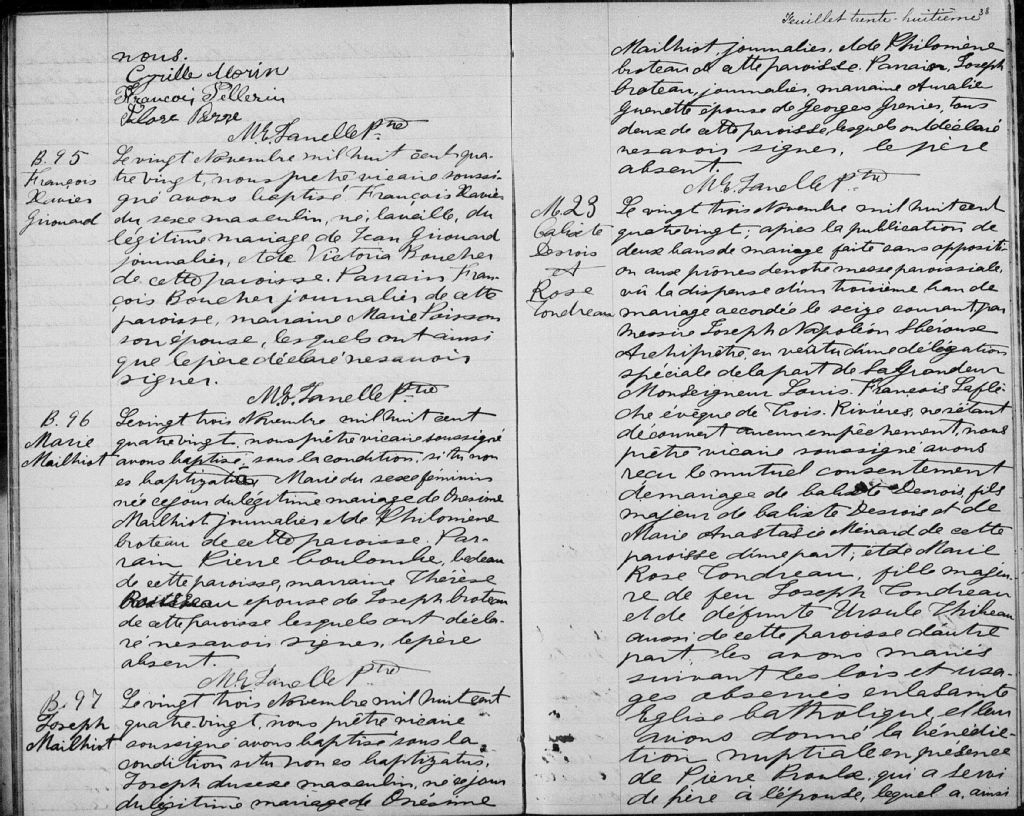 nous.
Cyrille Morin
François Pellerin
Flore
M. E. Janelle Ptre
B. 95
François
Xavier
Girouard
Le vingt Novembre mil huit cent qua-
tre vingt, nous prêtre vicaire soussi-
gné avons baptisé François Xavier
du sexe masculin, né, la veille, du
légitime mariage de Jean Girouard
journalier, et de Victoria Boucher
de cette paroisse. Parrain Fran-
çois Boucher journalier de cette
paroisse, marraine Marie Poisson
son épouse, lesquels ont ainsi
que le père déclaré ne savoir
signer.
M. E. Janelle Ptre
B. 96
Marie
Mailhiot
Le vingt trois Novembre mil huit cent
quatre vingt, nous prêtre vicaire soussigné
avons baptisé, sous la condition, si tu non
es baptizata, Marie du sexe féminin
née ce jour du légitime mariage de Onésime
Mailhiot journalier et de Philomène
Croteau de cette paroisse. Par-
rain Pierre Coulombe, bedeau
de cette paroisse, marraine Thérèse
épouse de Joseph Croteau
de cette paroisse lesquels ont décla-
ré ne savoir signer, le père
absent.
M. E. Janelle Ptre
B. 97
Joseph
Mailhiot
Le vingt trois Novembre mil huit cent
quatre vingt, nous prêtre vicaire
soussigné avons baptisé sous la
condition si tu non es baptizatus,
Joseph du sexe masculin, né ce jour
du légitime mariage de Onésime
Feuillet trente-huitième 38
Mailhiot, journalier, et de Philomène
Croteau de cette paroisse. Parrain, Joseph
Croteau, journalier, marraine Aurélie
Guenette épouse de Georges Grenier, tous
deux de cette paroisse, lesquels ont déclaré
ne savoir signer, le père
absent.
M. E. Janelle Ptre
M. 23
Calixte
Desrois
&
Rose
Tondreau
Le vingt trois Novembre mil huit cent
quatre vingt; après la publication de
deux bans de mariage faite sans oppositi-
on aux prônes de notre messe paroissiale,
vû la dispense d'un troisième ban de
mariage accordée le seize courant, par
Messire Joseph Napoléon Héroux
Archiprêtre, en vertu d'une délégation
spéciale de la part de Sa Grandeur
Monseigneur Louis-François Laflè-
che évêque de Trois-Rivières, ne s'étant
découvert aucun empêchement, nous
prêtre vicaire soussigné avons
reçu le mutuel consentement
de mariage de Calixte Desrois, fils
majeur de Calixte Desrois et de
Marie Anastasie Ménard de cette
paroisse d'une part; et de Marie
Rose Tondreau, fille majeu-
re de feu Joseph Tondreau
et de défunte Ursule Thibeau
aussi de cette paroisse d'autre
part, les avons mariés
suivant les lois et usa-
ges observés en la Sainte
Eglise Catholique, et leur
avons donné la bénédic-
tion nuptiale en présence
de Pierre Proulx, qui a servi
de père à l'épouse, lequel a, ainsi